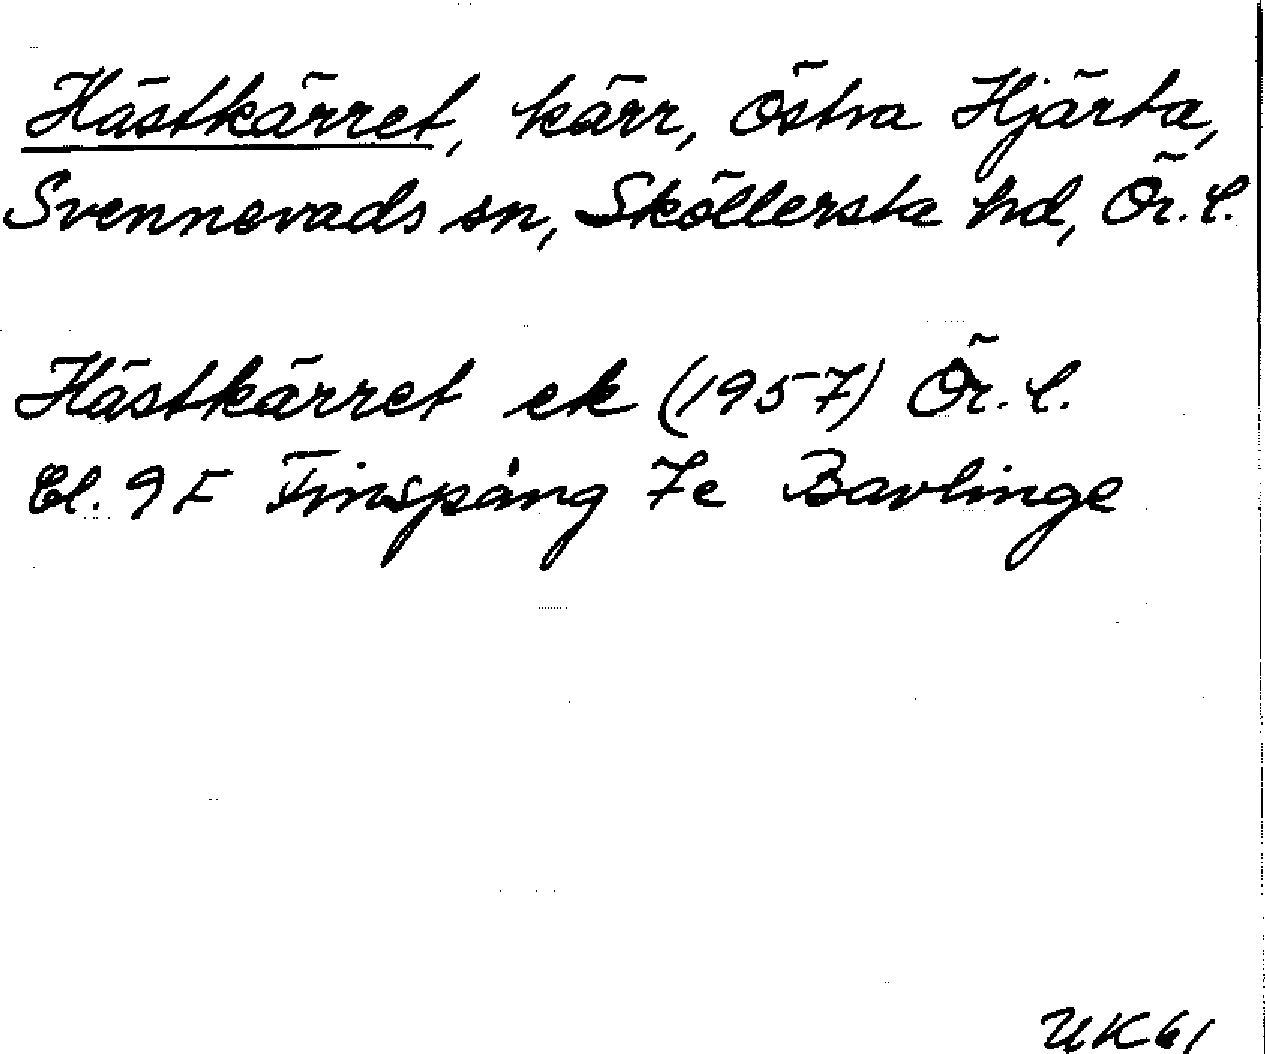 Hästkärret, kärr, Östra Hjärta,
Svennevads sn, Sköllersta hd, Ör. l.
Hästkärret ek (1957) Ör. l.
Bl. 9F Finspång 7e Bavlinge
UK61